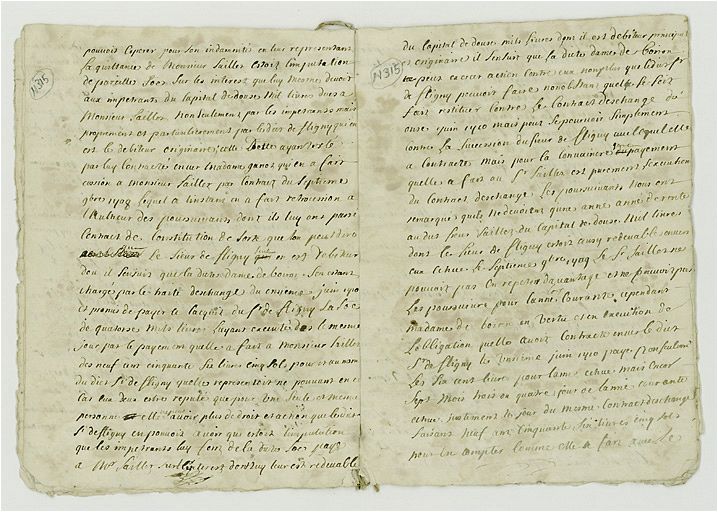 N315
pouvoit esperer pour son indemnité en leur representant
la quittance de Monsieur Saillez estoit l'imputation
de pareilles Sur les interest que luy mesme devoit
aux impetrants du Capital de douse Mil livres dues a
Monsieur Saillez non Seulement par les impetrants mais
proprement et particulierement par le dit de fligny qui en
est le debiteur originaire, elle ayant este
par luy Contractée envers Madame qui en a fait
cession a Monsieur Saillez par Contract du Septieme
9bre 1708 lequel a linstant en a fait retrocession a
l'Autheur des poursuivans dont ils luy ont passé
Contract de Constitution de Sorte que l'on peut dire
le Sieur de fligny en est debiteur
dou il s'ensuit que la dite dame de s'estant
chargé par le traité deschange du onzieme juin 1710
et promis de payer le du Sr de fligny
de quatorse Mils livres layant executé de le mesme
jour par le payement quelle a fait a Monsieur Saillez
des neuf cent cinquante Six livres cinq Sols pour
du dit Sr de fligny quelle representoit ne pouvant en ce
Cas eux deux estre reputé que pour une Seule et mesme
personne elle n'avoit plus de droit et action que le dit
Sr de fligny en pouvoit avoir qui estoit l'imputation
que les impetrants luy font de la dite payé
a Mr Saillez sur l'interest dont luy leur est redevable
N315
du Capital de douse mils livres dont il est debiteur principal
et originaire il s'ensuit que la dite dame de
ne peut exercer action contre eux non plus que le dit Sr
de fligny pouvoit faire nonobstant quelle Se Soit
fait restituer Contre le Contract deschange du
onse juin 1710 mais peut Se pourvoir Simplement
contre la Succession du Sieur de fligny avec lequel elle
a Contracté mais pour la Convaincre que le payement
quelle a fait au Sr Saillez est purement l'execution
du Contract deschange Les poursuivants vous ont
remarqué quils ne devoient qune année de rente
au dit Sieur Saillez du Capital de douse Mil livres
dont le Sieur de fligny estoit aussy redevable envers
eux Echue le Septieme 9bre 1709 le Sr Saillez ne
pouvoit pas En repeter davantage et ne pouvoit pas
Les poursuivre pour l'année Courante, cependant
Madame de en vertu et en execution de
L'obligation quelle avoit Contracté envers le dit
Sr de fligny le onsieme juin 1710 paye
Les Six cent livres pour l'année echue mais Encor
Sept Mois trois ou quatre jours de l'année courante
echue justement le jour du mesme Contract deschange
faisant neuf cent cinquante Six livres cinq Sols
pour un comptes Comme elle a fait avec le